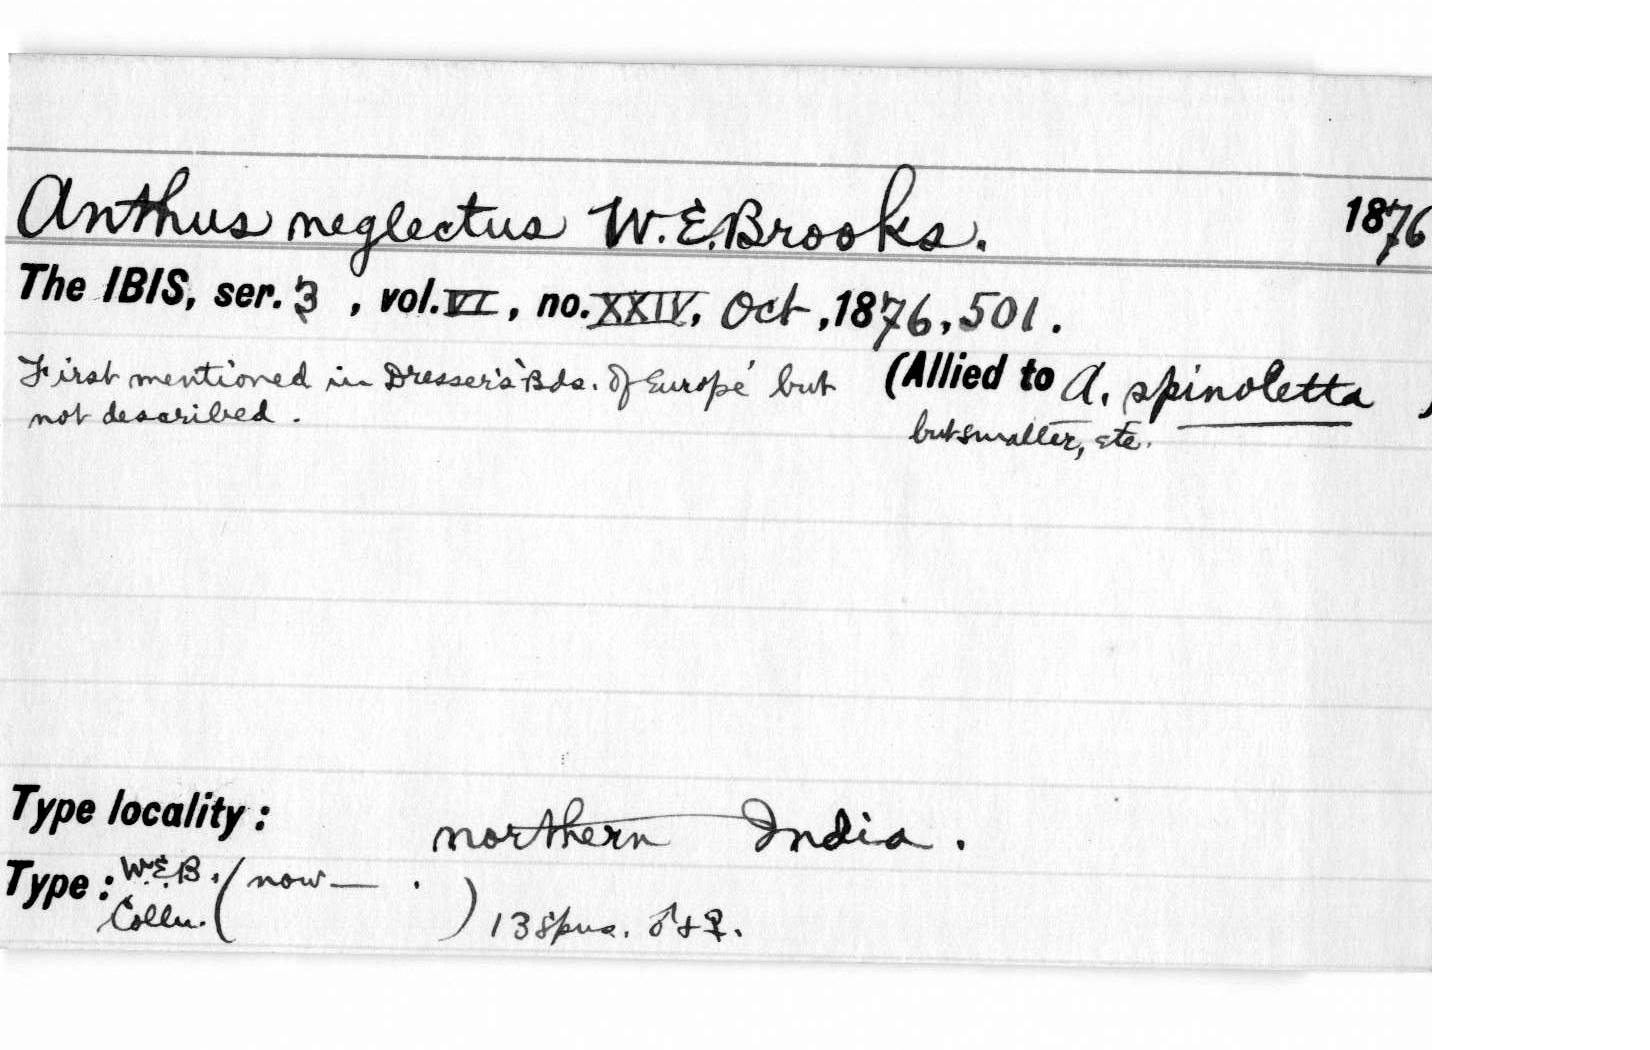 Anthus neglectus W.E. Brooks. 1876
The IBIS, ser. 3, vol. VI, no. XXIV, Oct, 1876, 501.
First mentioned in Dresser's 'Bds. of Europe' but (Allied to A. spinoletta )
not described. but smaller, etc.
Type locality: northern India.
Type: W.E.B. (now — . )
Colln. 13 spns. ♂ & ♀.